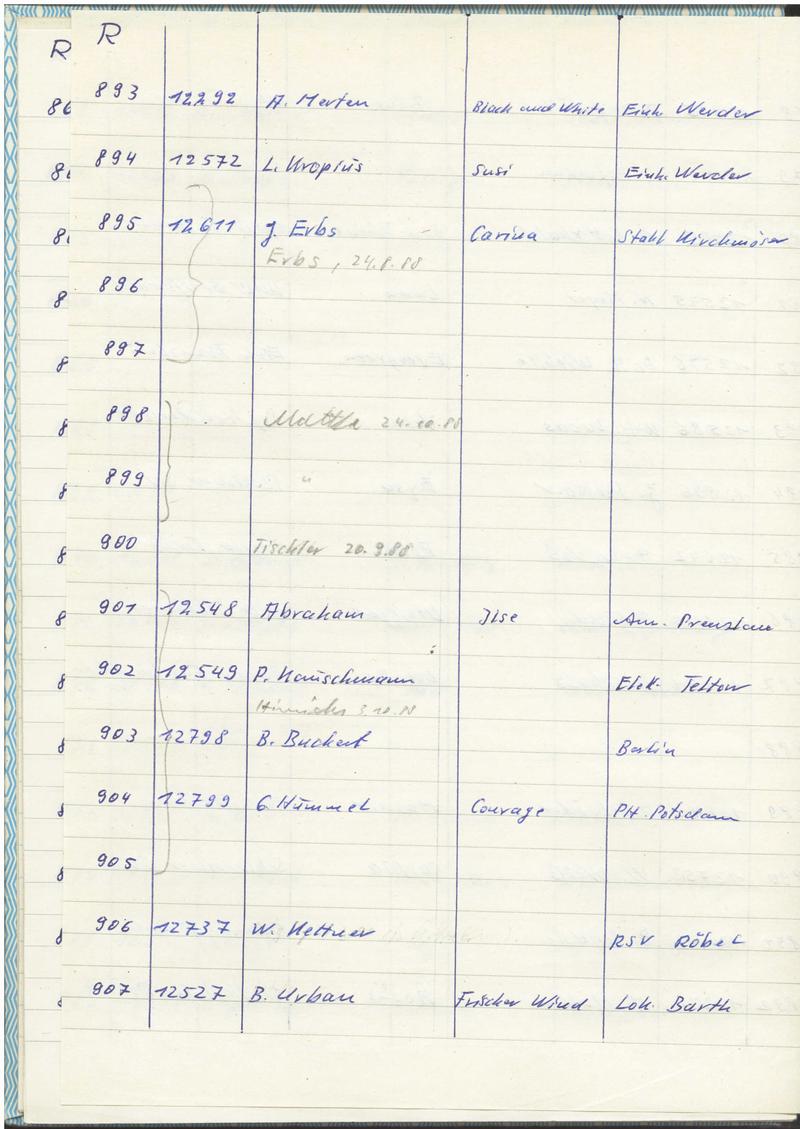 R R
893 12292 A. Merten Black and White Einh. Werder
894 12572 L. Kropius Susi Einh. Werder
895 12611 J. Erbs Carina Stahl Kirchmöser
Erbs, 24.8.88
896
897
898 24.10.88
899 "
900 Tischler 20.9.88
901 12548 Abraham Ilse Aum. Prenzlau
902 12549 P. Hauschmann Elek. Teltow
Hinrichs 3.10.88
903 12798 B. Buchert Berlin
904 12799 G. Hummel Courage PH. Potsdam
905
906 12737 W. Kettner RSV Röbel
907 12527 B. Urban Frischer Wind Lok. Barth